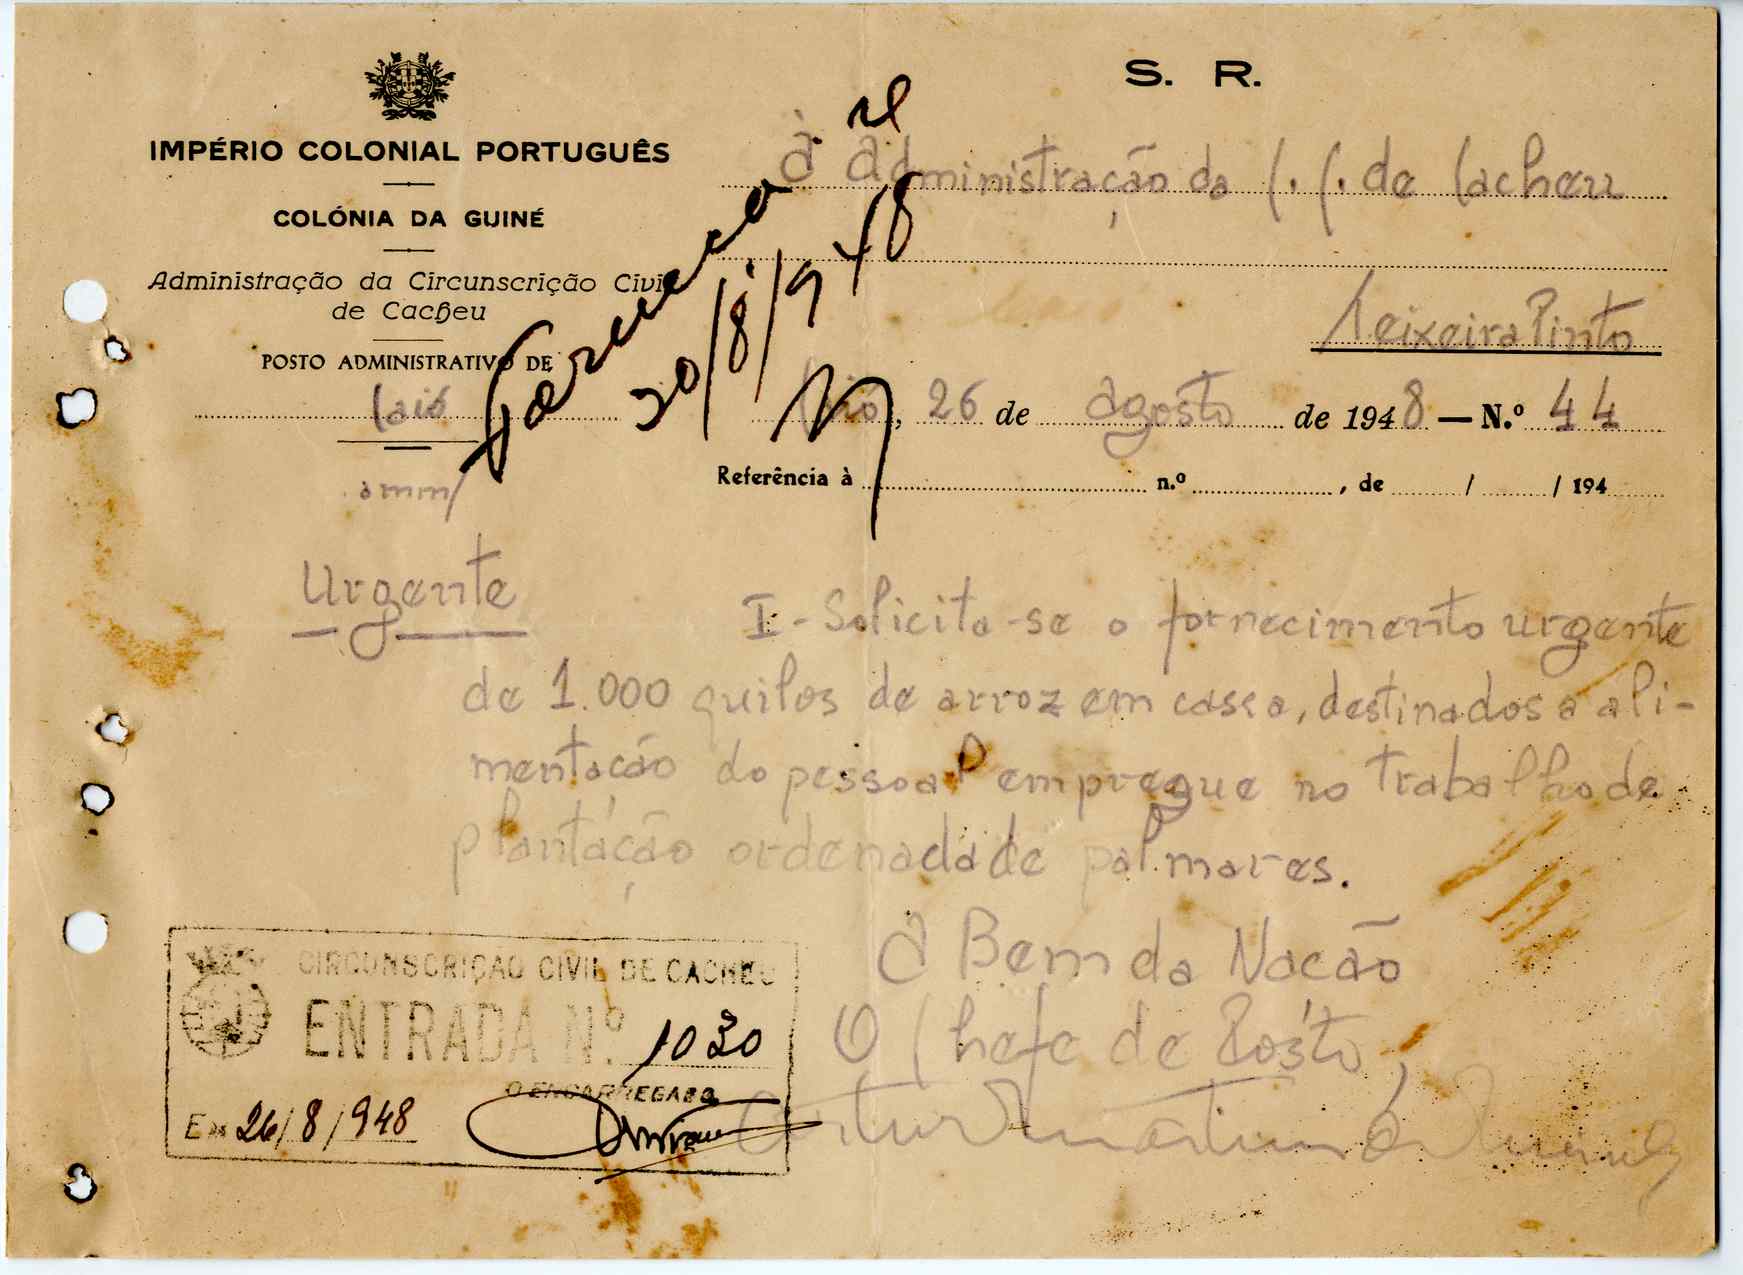 S. R.
IMPÉRIO COLONIAL PORTUGUÊS
COLÓNIA DA GUINÉ
Administração da Circunscrição Civil
de Cacheu
POSTO ADMINISTRATIVO DE
Caió
amm/
À Administração da C. C. de Cacheu
Teixeira Pinto
Caió, 26 de agosto de 1948 — N.º 44
Referência à n.º , de / / 194
Forneceu
30/8/948
Urgente
I - Solicita-se o fornecimento urgente
de 1.000 quilos de arroz em casca, destinados a ali-
mentação do pessoal empregue no trabalho de
plantação ordenada de palmares.
A Bem da Nação
O Chefe de Pôsto,
Artur Martins de
CIRCUNSCRIÇÃO CIVIL DE CACHEU
ENTRADA N.º 1030
O ENCARREGADO
Em 26/8/948